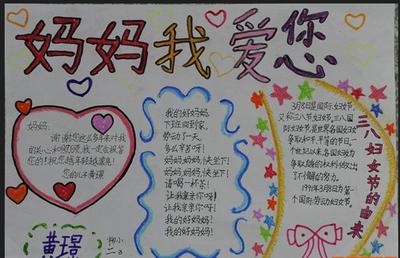 妈妈我爱您
妈妈:
谢谢您这么多年来对我
的关心和照顾,我一定会报答
您的!祝您越年轻越漂亮!
您的女儿:黄璟
黄璟
柳小
二3
我的好妈妈,
下班回到家,
劳动了一天,
多么辛苦呀!
妈妈,妈妈,快坐下!
妈妈,妈妈,快坐下!
请喝一杯茶!
让我亲亲你呀!
让我亲亲你呀!
我的好妈妈!
我的好妈妈!
3月8是国际妇女节,
又称三八节妇女节,三八
国际妇女节,是世界各国妇女
争取和平,平等的节日
一个世纪以来,各国妇女为
争取她的权利作出了
不懈的努力。
1911年3月8日为第一
个国际劳动妇女节。
三八妇女节的由来